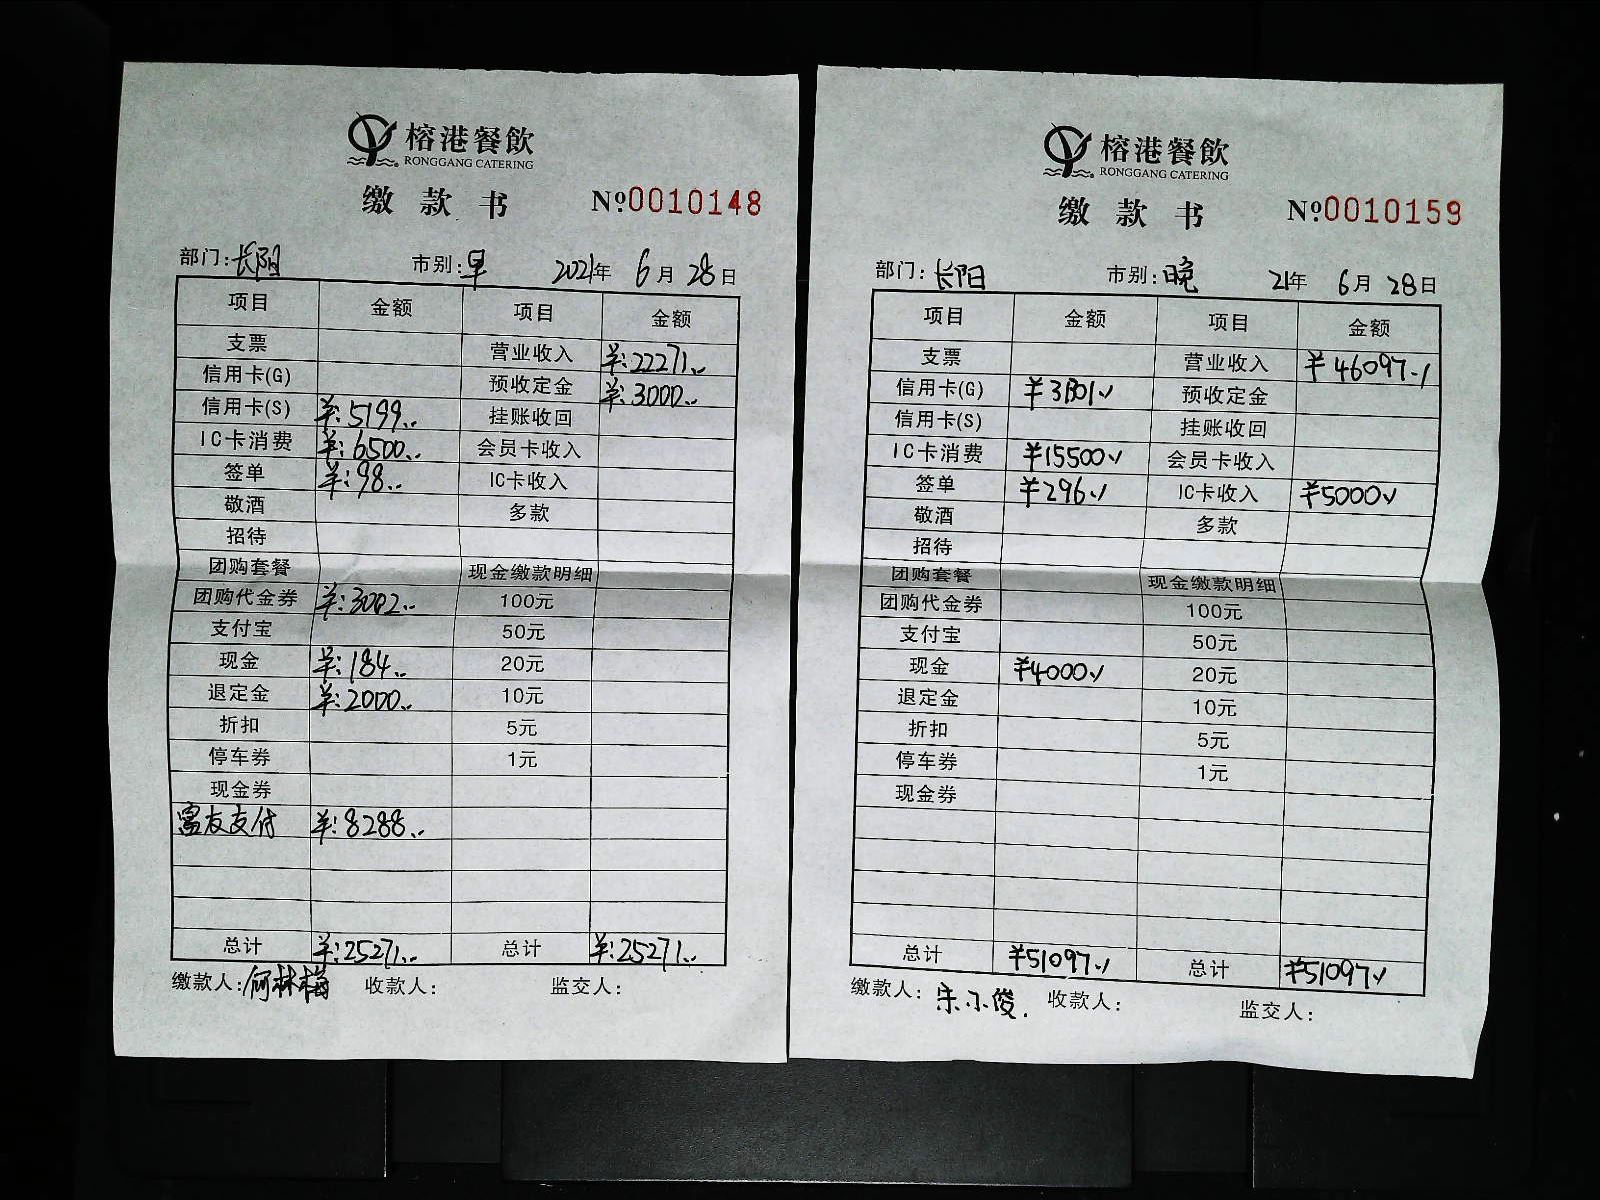 榕港餐飲
RONGGANG CATERING
缴款书 №0010148
部门:长阳 市别:早 2021年 6月 28日
项目 金额 项目 金额
支票 营业收入 ¥:22271..
信用卡(G) 预收定金 ¥:3000..
信用卡(S) ¥:5199.. 挂账收回
IC卡消费 ¥:6500.. 会员卡收入
签单 ¥:98.. IC卡收入
敬酒 多款
招待
团购套餐 现金缴款明细
团购代金券 ¥:3002.. 100元
支付宝 50元
现金 ¥:184.. 20元
退定金 ¥:2000.. 10元
折扣 5元
停车券 1元
现金券
富友支付 ¥:8288..
总计 ¥:25271.. 总计 ¥:25271..
缴款人:何林梅 收款人: 监交人:
榕港餐飲
RONGGANG CATERING
缴款书 №0010159
部门:长阳 市别:晚 21年 6月 28日
项目 金额 项目 金额
支票 营业收入 ¥46097.√
信用卡(G) ¥31301√ 预收定金
信用卡(S) 挂账收回
IC卡消费 ¥15500√ 会员卡收入
签单 ¥296√ IC卡收入 ¥5000√
敬酒 多款
招待
团购套餐 现金缴款明细
团购代金券 100元
支付宝 50元
现金 ¥4000√ 20元
退定金 10元
折扣 5元
停车券 1元
现金券
总计 ¥51097√ 总计 ¥51097√
缴款人:宋小俊. 收款人: 监交人: